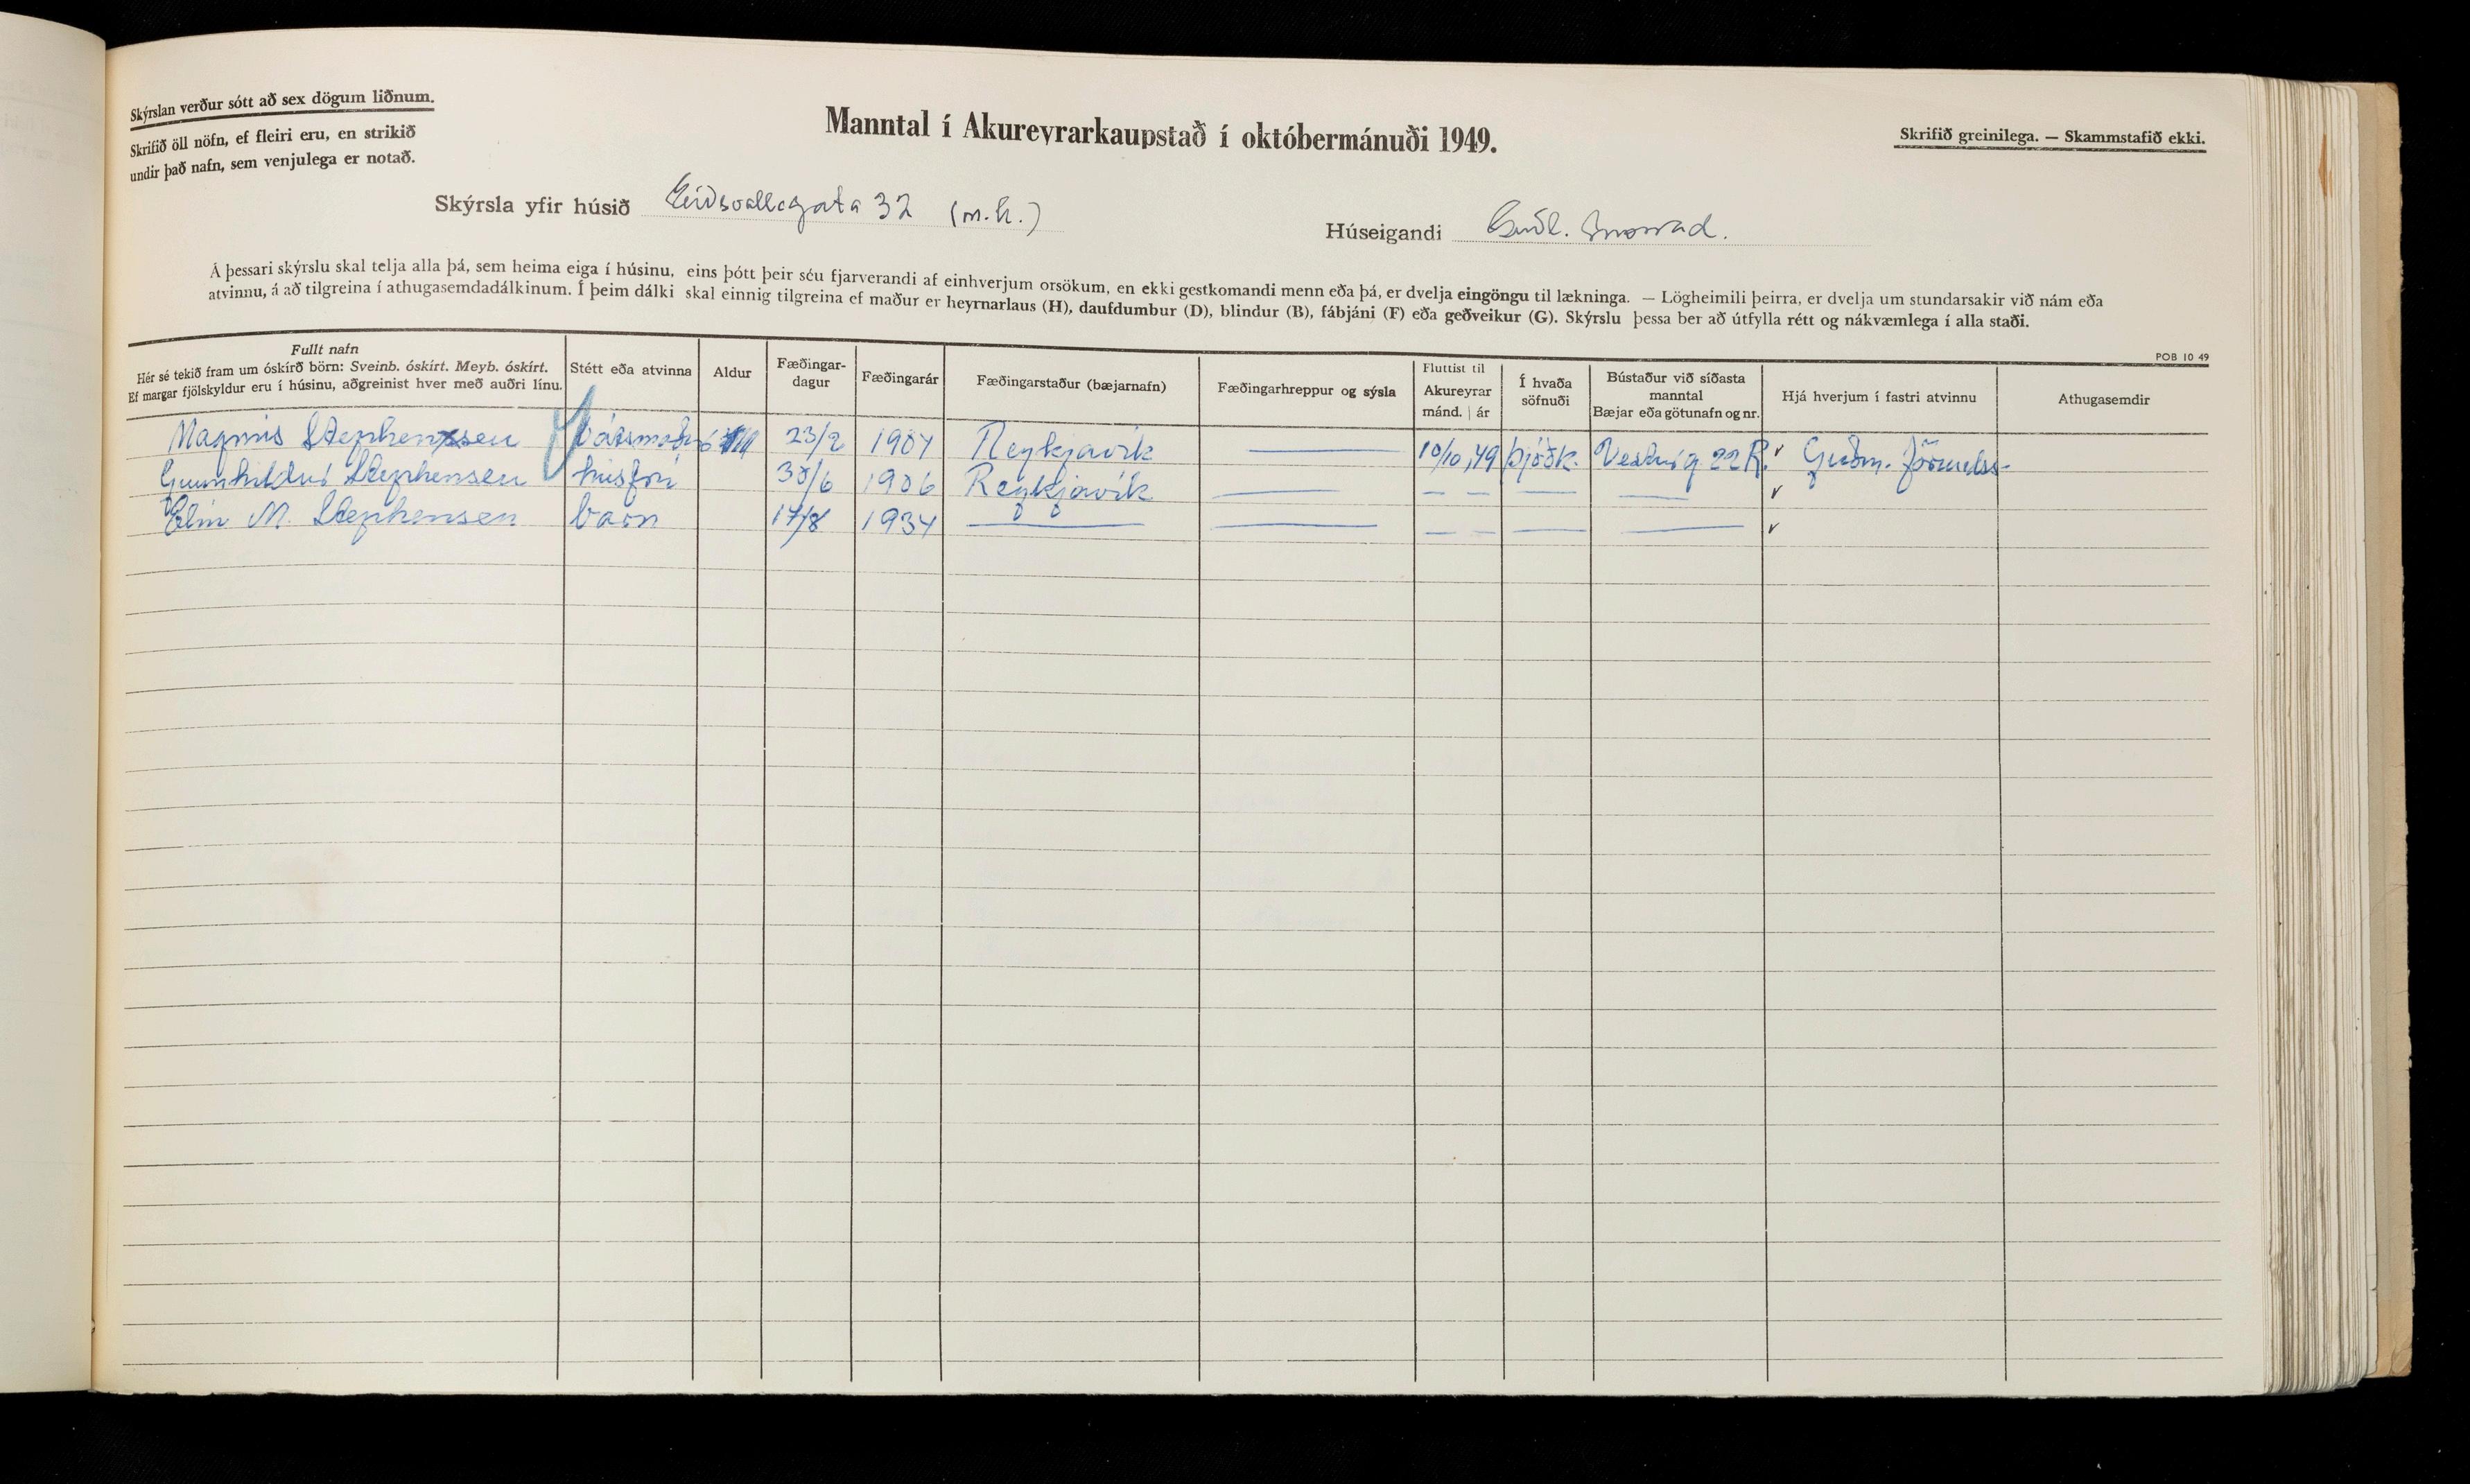 Skýrslan verður sótt að sex dögum liðnum.
Skrifið öll nöfn, ef fleiri eru, en strikið
undir það nafn, sem venjulega er notað.
Manntal í Akureyrarkaupstað í októbermánuði 1949.
Skrifið greinilega. — Skammstafið ekki.
Skýrsla yfir húsið Eiðsvallagata 32 (m.h.)
Húseigandi
Á þessari skýrslu skal telja alla þá, sem heima eiga í húsinu, eins þótt þeir séu fjarverandi af einhverjum orsökum, en ekki gestkomandi menn eða þá, er dvelja eingöngu til lækninga. — Lögheimili þeirra, er dvelja um stundarsakir við nám eða
atvinnu, á að tilgreina í athugasemdadálkinum. Í þeim dálki skal einnig tilgreina ef maður er heyrnarlaus (H), daufdumbur (D), blindur (B), fábjáni (F) eða geðveikur (G). Skýrslu þessa ber að útfylla rétt og nákvæmlega í alla staði.
POB 10 49
Fullt nafn
Hér sé tekið fram um óskírð börn: Sveinb. óskírt. Meyb. óskírt.
Ef margar fjölskyldur eru í húsinu, aðgreinist hver með auðri línu.
Stétt eða atvinna
Aldur
Fæðingar-
dagur
Fæðingarár
Fæðingarstaður (bæjarnafn)
Fæðingarhreppur og sýsla
Fluttist til
Akureyrar
mánd. | ár
Í hvaða
söfnuði
Bústaður við síðasta
manntal
Bæjar eða götunafn og nr.
Hjá hverjum í fastri atvinnu
Athugasemdir
Magnús Stephensen 23/2 1907 Reykjavík 10/10 ,49 þjóðk. 22 R. Guðm. Jörundss.
Gunnhildur Stephensen húsfrú 30/6 1906 Reykjavík
Elín M. Stephensen barn 17/8 1934